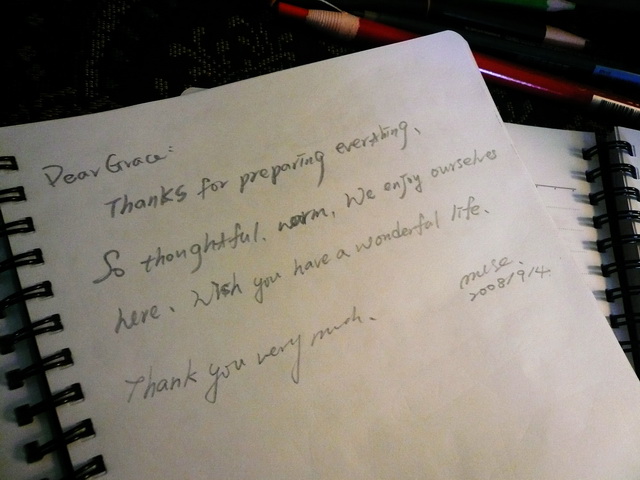 Dear Grace:
Thanks for preparing everything、
So thoughtful. warm, We enjoy ourselves
here、Wish you have a wonderful life、
muse.
2008/9/4
Thank you very much、